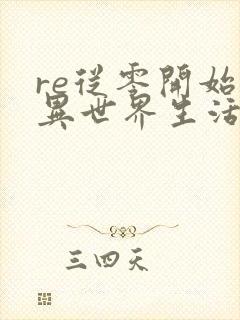 re從零開始
異世界生活
三四天